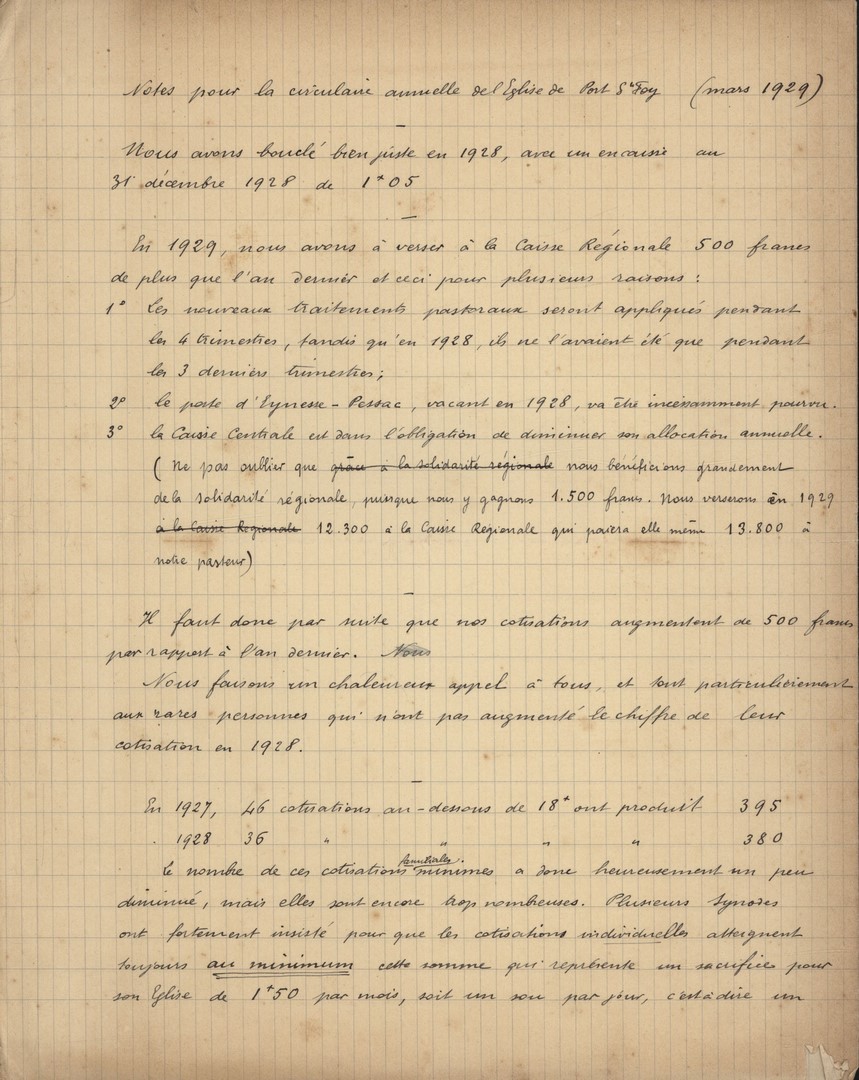 Notes pour la circulaire annuelle de l'Eglise de Port Ste Foy (mars 1929)
Nous avons bouclé bien juste en 1928, avec un encaisse au
31 décembre 1928 de 1f05
En 1929, nous avons à verser à la Caisse Régionale 500 francs
de plus que l'an dernier et ceci pour plusieurs raisons :
1° Les nouveaux traitements pastoraux seront appliqués pendant
les 4 trimestres, tandis qu'en 1928, ils ne l'avaient été que pendant
les 3 derniers trimestres;
2° le poste d'Eynesse-Pessac, vacant en 1928, va être incessamment pourvu.
3° la Caisse Centrale est dans l'obligation de diminuer son allocation annuelle.
( Ne pas oublier que grâce à la solidarité régionale nous bénéficions grandement
de la solidarité régionale, puisque nous y gagnons 1.500 francs. Nous verserons en 1929
à la Caisse Regionale 12.300 à la Caisse Regionale qui paiera elle même 13.800 à
notre pasteur)
Il faut donc par suite que nos cotisations augmentent de 500 francs
par rapport à l'an dernier. Nous
Nous faisons un chaleureux appel à tous, et tout particulièrement
aux rares personnes qui n'ont pas augmenté le chiffre de leur
cotisation en 1928.
En 1927, 46 cotisations au-dessous de 18f ont produit 395
. 1928 36 " " " " 380
Le nombre de ces cotisations familiales minimes a donc heureusement un peu
diminué, mais elles sont encore trop nombreuses. Plusieurs Synodes
ont fortement insisté pour que les cotisations individuelles atteignent
toujours au minimum cette somme qui représente un sacrifice pour
son Eglise de 1f50 par mois, soit un sou par jour, c'est à dire un